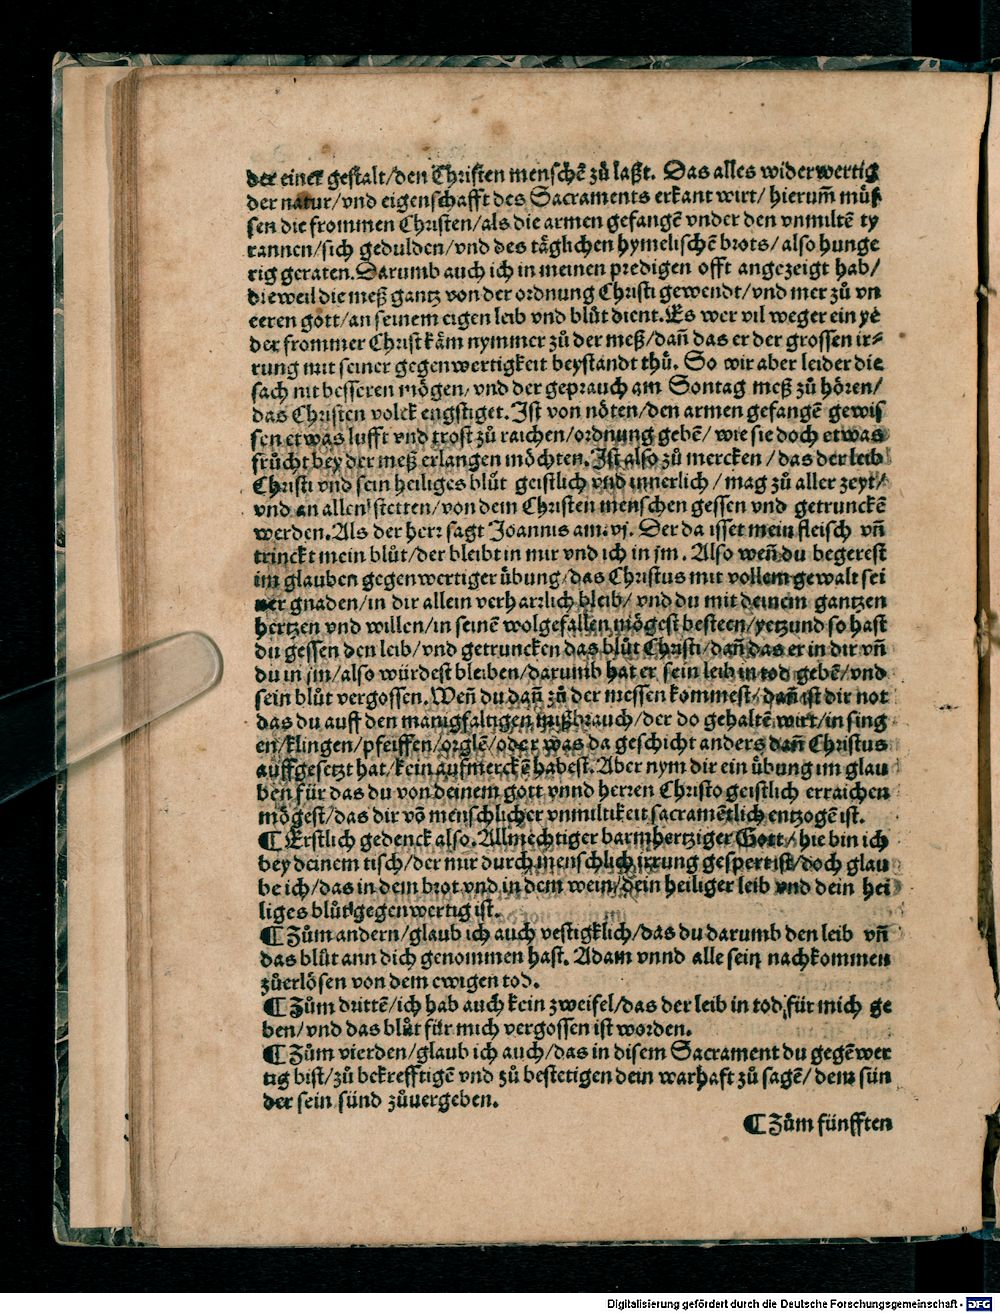 der einer gestalt/den Christen menschē zů laßt. Das alles widerwertig
der natur/vnd eigenschafft des Sacraments erkant wirt/ hierum̄ můſ
sen die frommen Christen/als die armen gefangē vnder den vnmiltē ty
rannen/sich gedulden/vnd des täglichen hymelischē brots/ also hunge
rig geraten. Darumb auch ich in meinen predigen offt angezeigt hab/
dieweil die meß gantz von der ordnung Christi gewendt/vnd mer zů vn
eeren gott/an seinem eigen leib vnd blůt dient. Es wer vil weger ein ye
der frommer Christ käm nymmer zů der meß/dan̄ das er der grossen ir⸗
rung mit seiner gegenwertigkeit beystandt thů. So wir aber leider die
sach nit besseren mögen/ vnd der geprauch am Sontag meß zů hören/
das Christen volck engstiget. Ist von nöten/den armen gefangē gewis
sen etwas lufft vnd trost zů raichen/ordnung gebē/ wie sie doch etwas
frůcht bey der meß erlangen möchten. Ist also zů mercken /das der leib
Christi vnd sein heiliges blůt geistlich vnd innerlich / mag zů aller zeyt/
vnd an allen stetten/von dem Christen menschen gessen vnd getrunckē
werden. Als der herr sagt Joannis am. vj. Der da isset mein fleisch vn̄
trinckt mein blůt/der bleibt in mir vnd ich in jm. Also wen̄ du begerest
im glauben gegenwertiger übung/das Christus mit vollem gewalt sei
ner gnaden/in dir allein verharrlich bleib/ vnd du mit deinem gantzen
hertzen vnd willen/in seinē wolgefallen mögest besteen/yetzund so hast
du gessen den leib/vnd getruncken das blůt Christi/dan̄ das er in dir vn̄
du in jm/also würdest bleiben/darumb hat er sein leib in tod gebē/vnd
sein blůt vergossen. Wen̄ du dan̄ zů der messen kommest/dan̄ ist dir not
das du auff den manigfaltigen mißbrauch/der do gehaltē wirt/in sing
en/klingen/pfeiffen/orglē/oder was da geschicht anders dan̄ Christus
auffgesetzt hat/kein aufmerckē habest. Aber nym dir ein übung im glau
ben für das du von deinem gott vnnd herren Christo geistlich erraichen
mögest/das dir vō menschlicher vnmiltikeit sacramētlich entzogē ist.
¶ Erstlich gedenck also. Allmechtiger barmhertziger Gott/ hie bin ich
bey deinem tisch/der mir durch menschlich irrung gespert ist/doch glau
be ich/das in dem brot vnd in dem wein/dein heiliger leib vnd dein hei
liges blůt gegenwertig ist.
¶ Zům andern/glaub ich auch vestigklich/das du darumb den leib vn̄
das blůt ann dich genommen hast. Adam vnnd alle sein nachkommen
zůerlösen von dem ewigen tod.
¶ Zům drittē/ich hab auch kein zweifel/das der leib in tod für mich ge
ben/vnd das blůt für mich vergossen ist worden.
¶ Zům vierden/glaub ich auch/das in disem Sacrament du gegēwer
tig bist/zů bekrefftigē vnd zů bestetigen dein warhaft zů sagē/ dem sün
der sein sünd zůuergeben.
¶ Zům fünfften
Digitalisierung gefördert durch die Deutsche Forschungsgemeinschaft - DFG